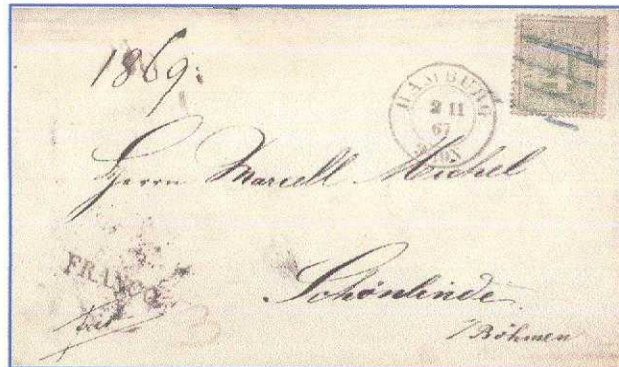 1869:
HAMBURG
2 11
67
Herrn Marcell Michel
FRANCO
Schönlinde
/Böhmen